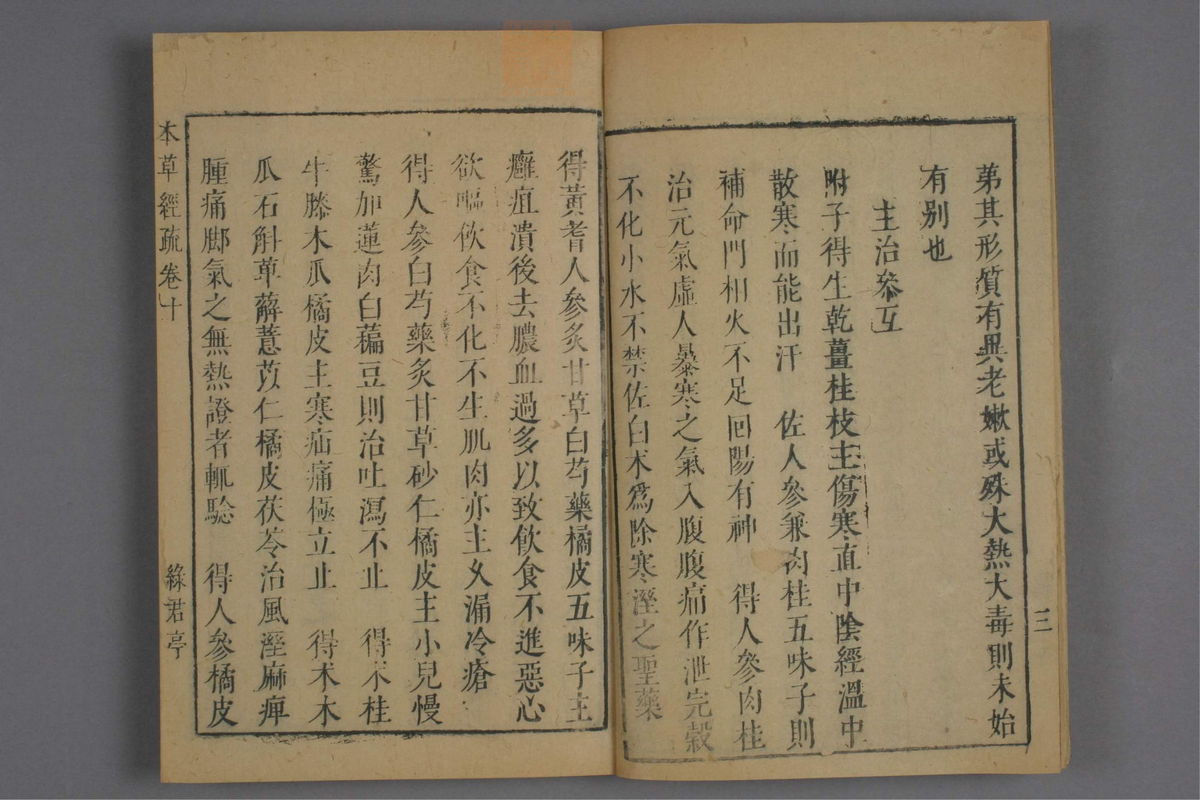 弟其形質有異老嫩或殊大熱大毒則未始
有别也
主治叅互
附子得生乾薑桂枝主傷寒直中陰經溫中
散寒而能出汗　佐人參兼肉桂五味子則
補命門相火不足回陽有神　得人參肉桂
治元氣虛人暴寒之氣入腹腹痛作泄完穀
不化小水不禁佐白术爲除寒溼之聖藥
三
得黃耆人參炙甘草白芍藥橘皮五味子主
癰疽潰後去膿血過多以致飲食不進惡心
欲嘔飲食不化不生肌肉亦主久漏冷瘡
得人參白芍藥炙甘草砂仁橘皮主小兒慢
驚加蓮肉白藊豆則治吐瀉不止　得术桂
牛膝木瓜橘皮主寒疝痛極立止　得术木
瓜石斛萆薢薏苡仁橘皮茯苓治風溼麻痺
腫痛脚氣之無熱證者輒驗　得人參橘皮
本草經疏卷十
綠君亭